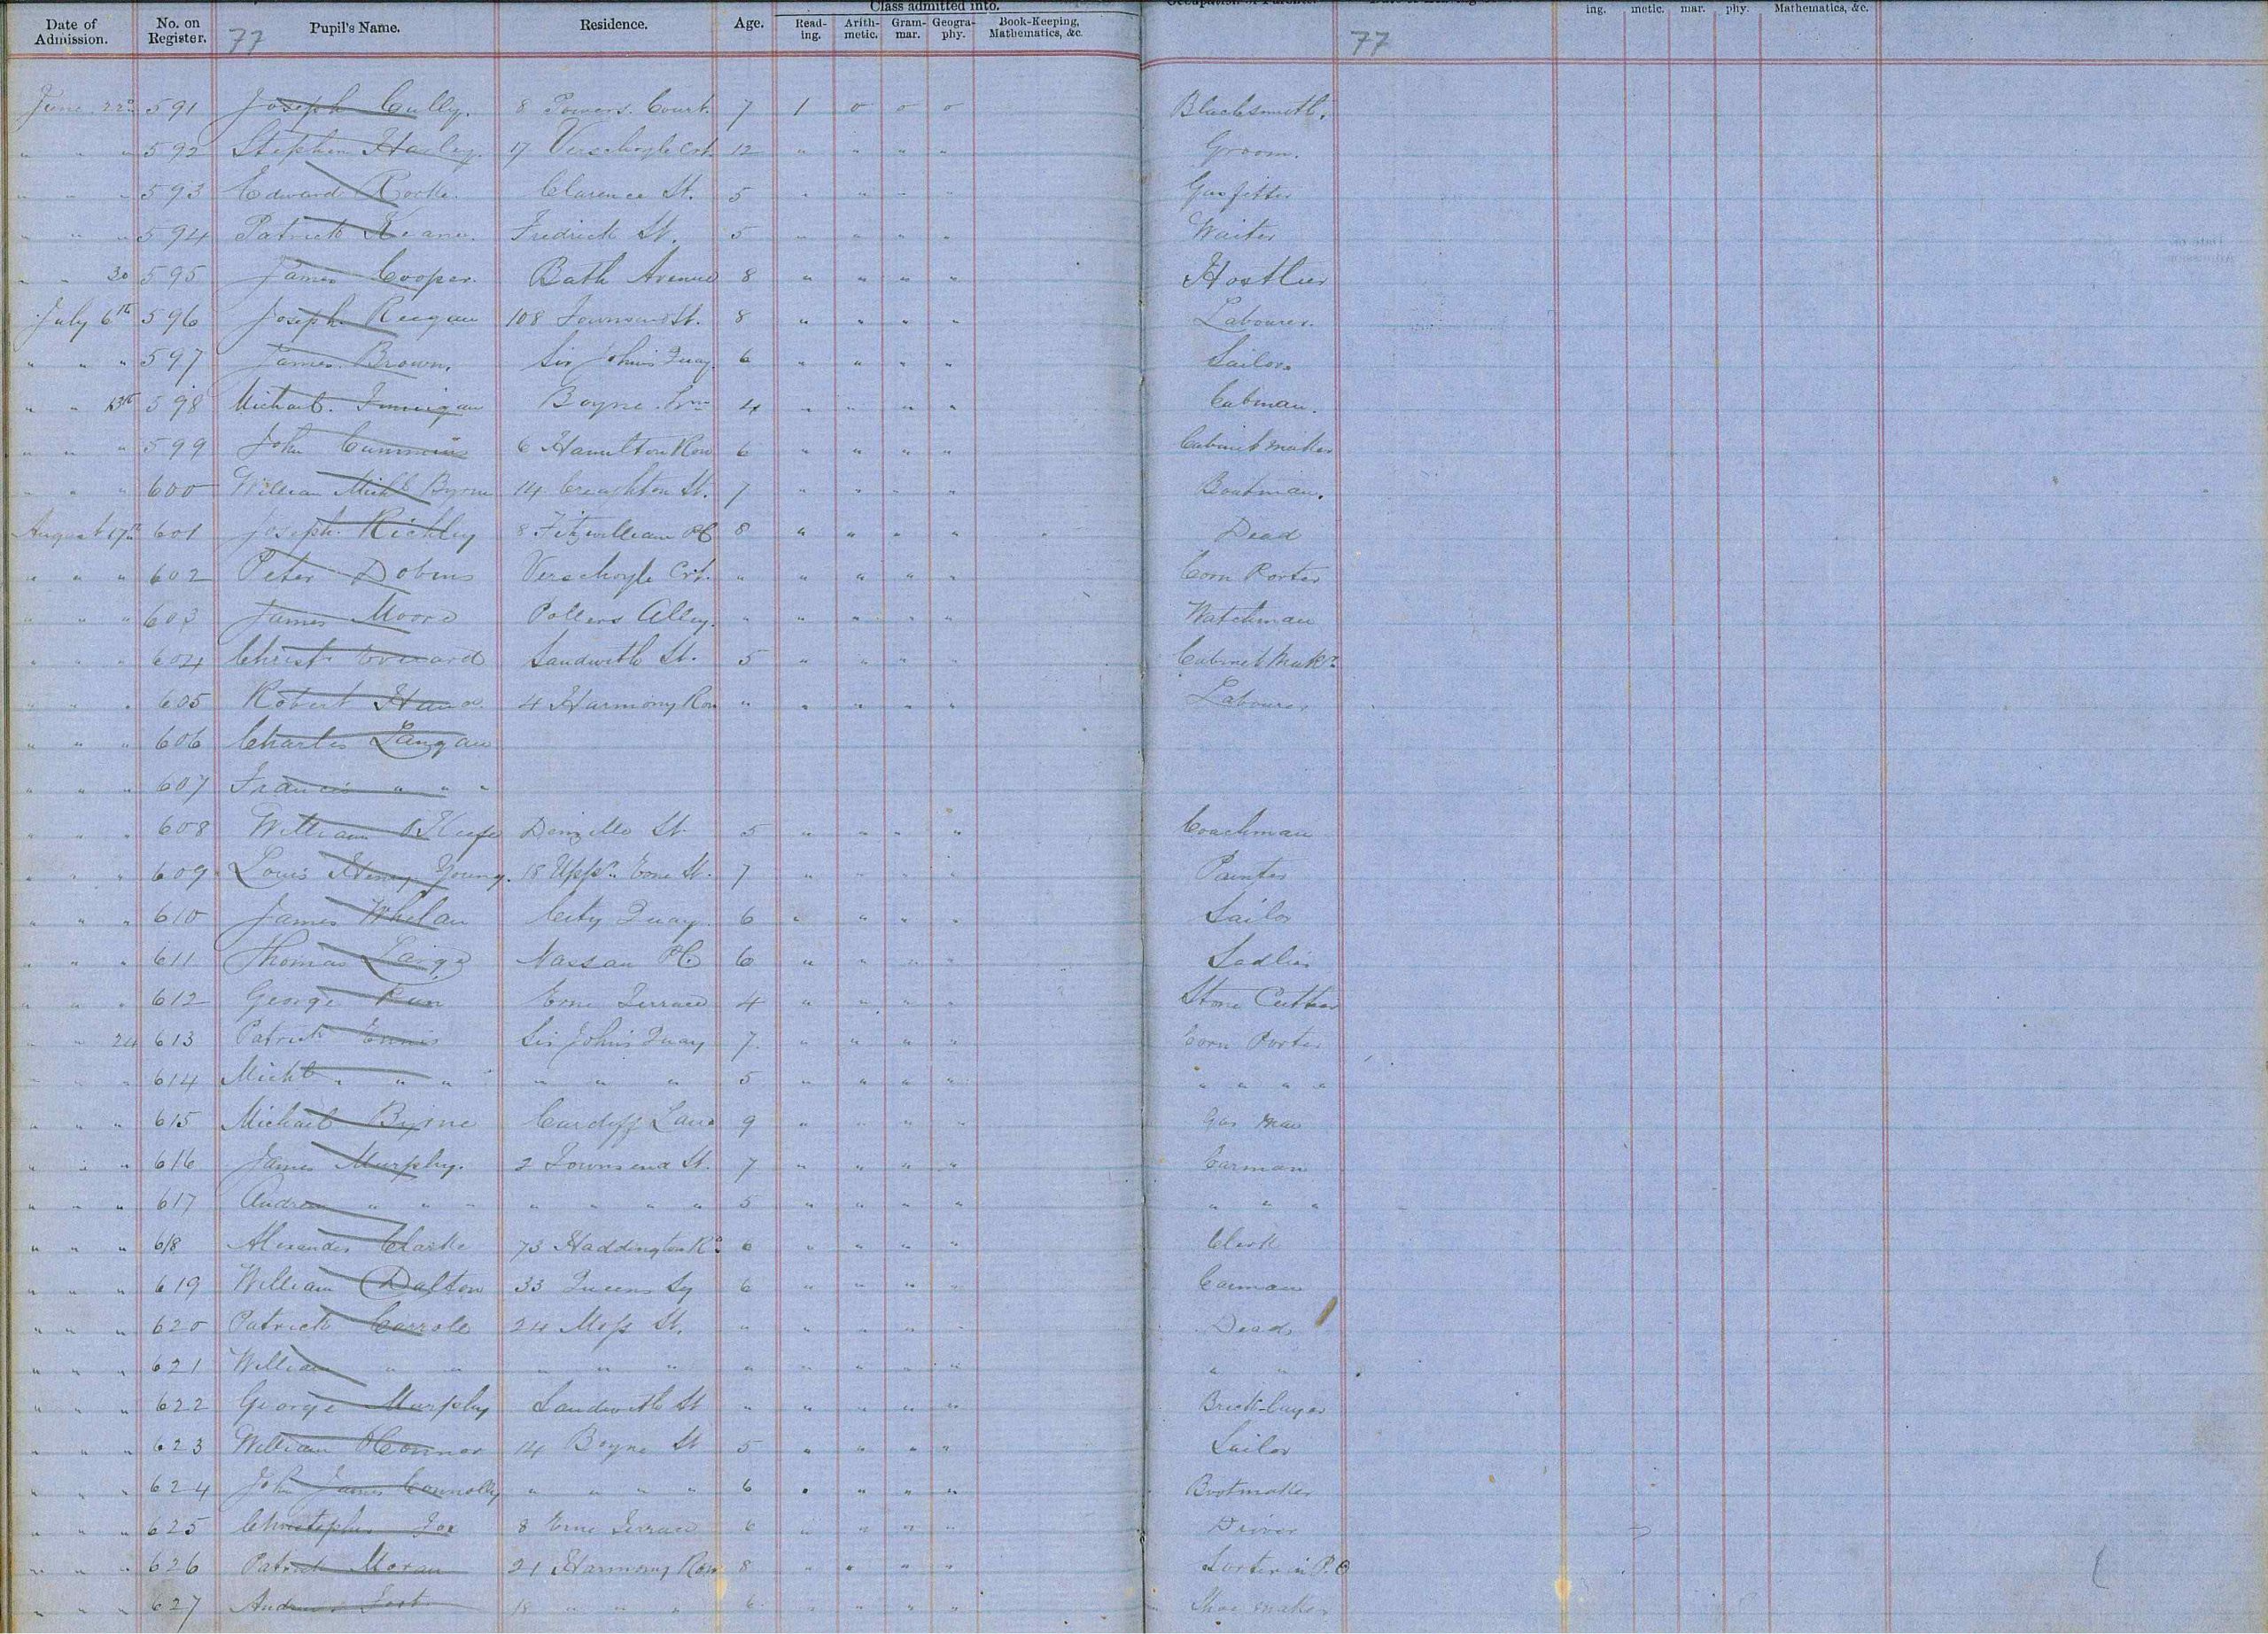 Class admitted into.
Date of Admission. No. on Register. 77 Pupil's Name. Residence. Age. Read-ing. Arith-metic. Gram-mar. Geogra-phy. Book-Keeping, Mathematics, &c. 77 ing. metic. mar. phy. Mathematics, &c.
June 22nd 591 Joseph Cully. 8 Powers. Court. 7 1 0 0 0 Blacksmith.
" " " 592 Stephen Harley. 17 Verschoyle Crt. 12 " " " " Groom.
" " " 593 Edward Rorke. Clarence St. 5 " " " " Gasfitter
" " " 594 Patrick Keane. Fredrick St. 5 " " " " Waiter
" " 30 595 James Cooper. Bath Avenue 8 " " " " Hostlier
July 6th 596 Joseph Reegan 108 Townsend St. 8 " " " " Labourer.
" " " 597 James Brown. Sir John's Quay. 6 " " " " Sailor.
" " 13th 598 Michael. Finnigan Boyne 4 " " " " Cabman.
" " " 599 John Cummins 6 Hamilton Row 6 " " " " Cabinet maker
" " " 600 William Michl Byrne 14 Creighton St. 7 " " " " Boatman.
August 17th 601 Joseph. Richley 8 Fitzwilliam Pl 8 " " " " Dead
" " " 602 Peter Dobins Verschoyle Crt. " " " " " Corn Porter
" " " 603 James Moore Pollers Alley. " " " " " Watchman
" " " 604 Christr Everard Sandwith St. 5 " " " " Cabinet Makr
" " " 605 Robert 4 Harmony Row " " " " " Labourer
" " " 606 Charles Langan
" " " 607 Francis " " "
" " " 608 William O'Keefe Denzille St. 5 " " " " Coachman
" " " 609 Louis Henry Young. 18 Uppr. Erne St. 7 " " " " Painter
" " " 610 James Whelan City Quay. 6 " " " " Sailor
" " " 611 Thomas Large Nassau Pl. 6 " " " " Sadlier
" " " 612 George Erne Terrace 4 " " " " Stone Cutter
" " 24 613 Patrick Ennis Sir John's Quay 7. " " " " Corn Porter
" " " 614 Michl. " " " " " 5 " " " " " " " "
" " " 615 Michael Byrne Cardiff Lane 9 " " " " Gas Man
" " " 616 James Murphy. 2 Townsend St. 7 " " " " Carman
" " " 617 Andrew " " " " " " " 5 " " " " " " "
" " " 618 Alexander Clarke 73 Haddington Rd 6 " " " " Clerk
" " " 619 William Dalton 33 Queens Sq 6 " " " " Carman
" " " 620 Patrick Carrole 24 Moss St. " " " " " Dead
" " " 621 William " " " " " " " " " " " "
" " " 622 George Murphy Sandwith St " " " " " Brick-layer
" " " 623 William O'Connor 14 Boyne St 5 " " " " Sailor
" " " 624 John James Connolly " " " " 6 " " " " Bootmaker
" " " 625 Christopher Fox 8 Erne Terrace 6 " " " " Driver
" " " 626 Patrick Moran 21 Harmony Row 8 " " " " Sorter in P.O
" " " 627 Andrew 18 " " " 6 " " " " Shoe maker